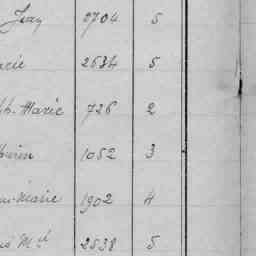 Jean 2704 5
arie 2634 5
ph. Marie 726 2
1052 3
Marie 1902 4
Md 2538 5